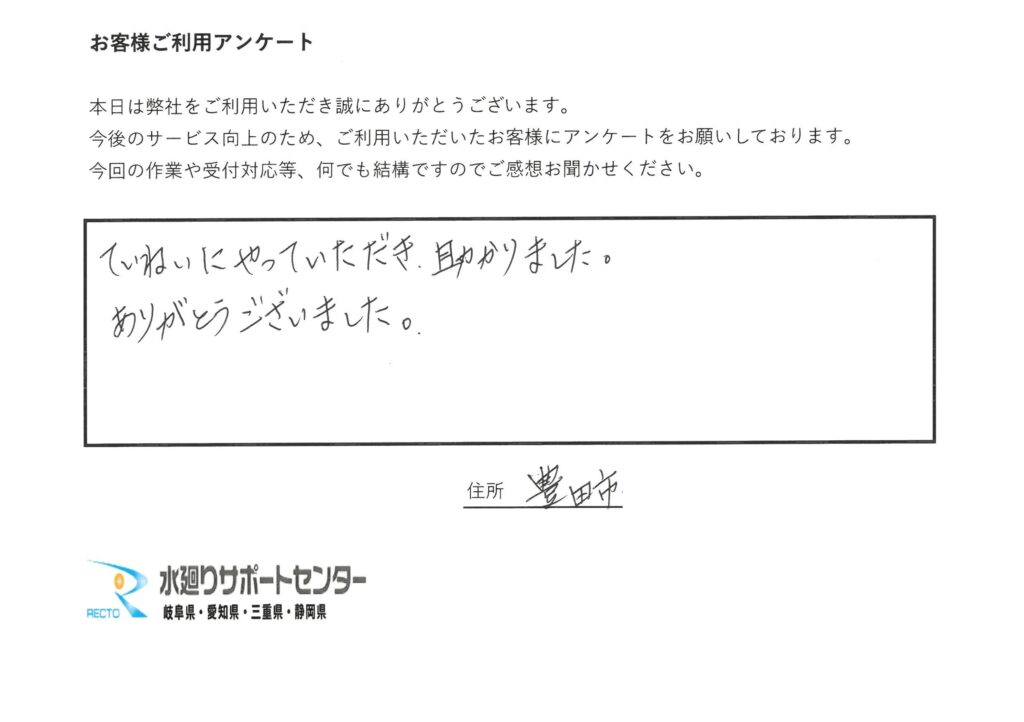 お客様ご利用アンケート
本日は弊社をご利用いただき誠にありがとうございます。
今後のサービス向上のため、ご利用いただいたお客様にアンケートをお願いしております。
今回の作業や受付対応等、何でも結構ですのでご感想お聞かせください。
ていねいにやっていただき、助かりました。
ありがとうございました。
住所 豊田市
RECTO 水廻りサポートセンター
岐阜県・愛知県・三重県・静岡県